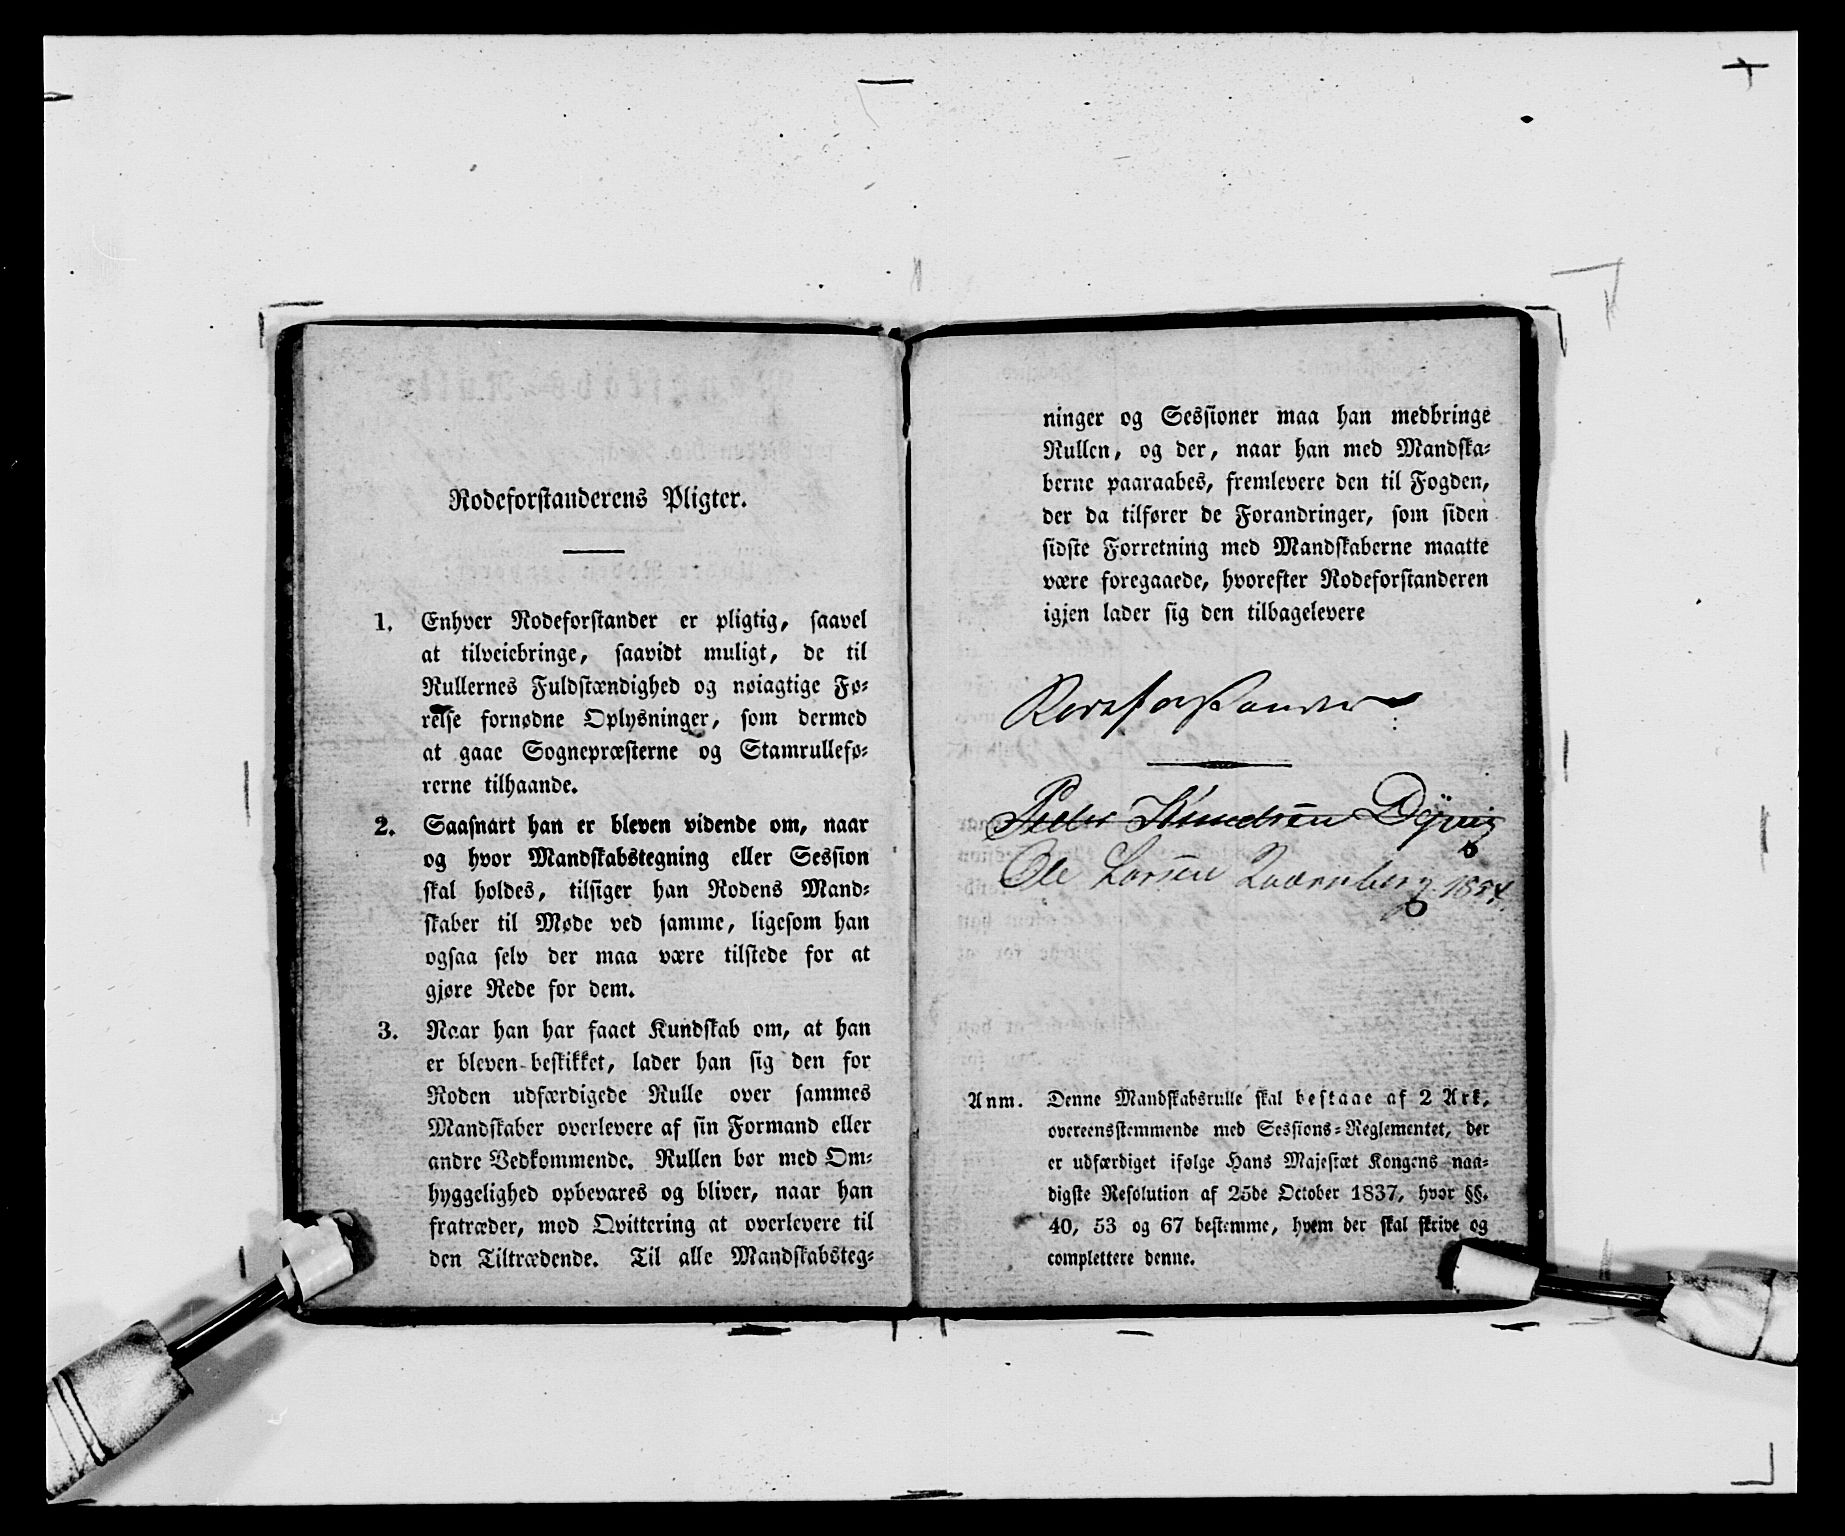 Rodeforstanderens Pligter.
1. Enhver Rodeforstander er pligtig, saavel
at tilveiebringe, saavidt muligt, de til
Rullernes Fuldstændighed og nøiagtige Fø-
relse fornødne Oplysninger, som dermed
at gaae Sognepræsterne og Stamrullefø-
rerne tilhaande.
2. Saasnart han er bleven vidende om, naar
og hvor Mandskabstegning eller Session
skal holdes, tilsiger han Rodens Mand-
skaber til Møde ved samme, ligesom han
ogsaa selv der maa være tilstede for at
gjøre Rede for dem.
3. Naar han har faaet Kundskab om, at han
er bleven beskikket, lader han sig den for
Roden udfærdigede Rulle over sammes
Mandskaber overlevere af sin Formand eller
andre Vedkommende. Rullen bør med Om-
hyggelighed opbevares og bliver, naar han
fratræder, mod Qvittering at overlevere til
den Tiltrædende. Til alle Mandskabsteg-
ninger og Sessioner maa han medbringe
Rullen, og der, naar han med Mandska-
berne paaraabes, fremlevere den til Fogden,
der da tilfører de Forandringer, som siden
sidste Forretning med Mandskaberne maatte
være foregaaede, hvorefter Rodeforstanderen
igjen lader sig den tilbagelevere
Rodeforstander
Peder Knudsen Dÿvig
Ole Larsen
Anm. Denne Mandskabsrulle skal bestaae af 2 Ark,
overeensstemmende med Sessions-Reglementet, der
er udfærdiget ifølge Hans Majestæt Kongens naa-
digste Resolution af 25de October 1837, hvor §§.
40, 53 og 67 bestemme, hvem der skal skrive og
complettere denne.